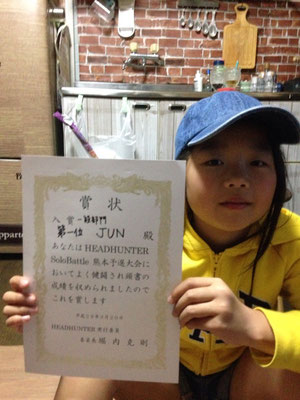 賞状
入賞 一般部門
第一位 JUN 殿
あなたは HEADHUNTER
SoloBattle 熊本予選大会に
おいてよく健闘され頭書の
成績を収められましたので
これを賞します
HEADHUNTER 実行委員
委員長 堀内 克則